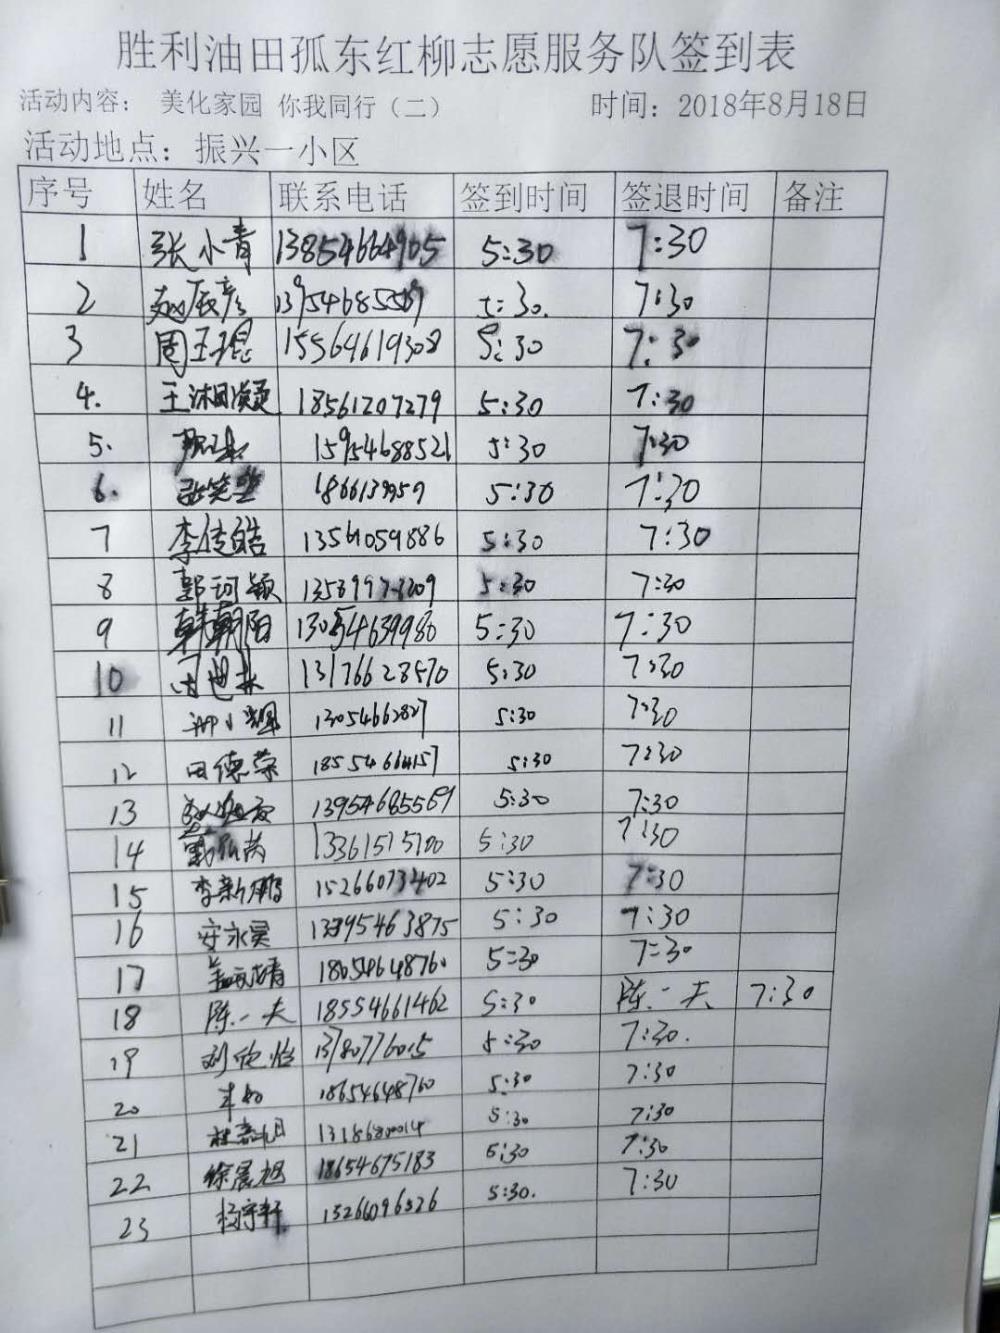 胜利油田孤东红柳志愿服务队签到表
活动内容： 美化家园 你我同行（二） 时间：2018年8月18日
活动地点：振兴一小区
序号 姓名 联系电话 签到时间 签退时间 备注
1 张小青 13854664905 5:30 7:30
2 赵辰彦 13954685569 5:30. 7:30
3 周玉琨 15564619308 5:30 7:30
4. 王沐 18561207279 5:30 7:30
5. 15954688521 5:30 7:30
6. 张笑 5:30 7:30
7 李传皓 13561059886 5:30 7:30
8 郭珂颖 5:30 7:30
9 韩朝阳 13054639980 5:30 7:30
10 13176628570 5:30 7:30
11 13054662827 5:30 7:30
12 田德荣 18554664157 5:30 7:30
13 13954685569 5:30 7:30
14 13361515700 5:30 7:30
15 李新鹏 15266073402 5:30 7:30
16 安永昊 13395463875 5:30 7:30
17 18054648760 5:30 7:30
18 陈一夫 18554661462 5:30 陈一夫 7:30
19 刘欣怡 13780776015 5:30 7:30.
20 18654648760 5:30 7:30
21 5:30 7:30
22 徐晨旭 18654675183 5:30 7:30
23 杨宇轩 15266096326 5:30. 7:30